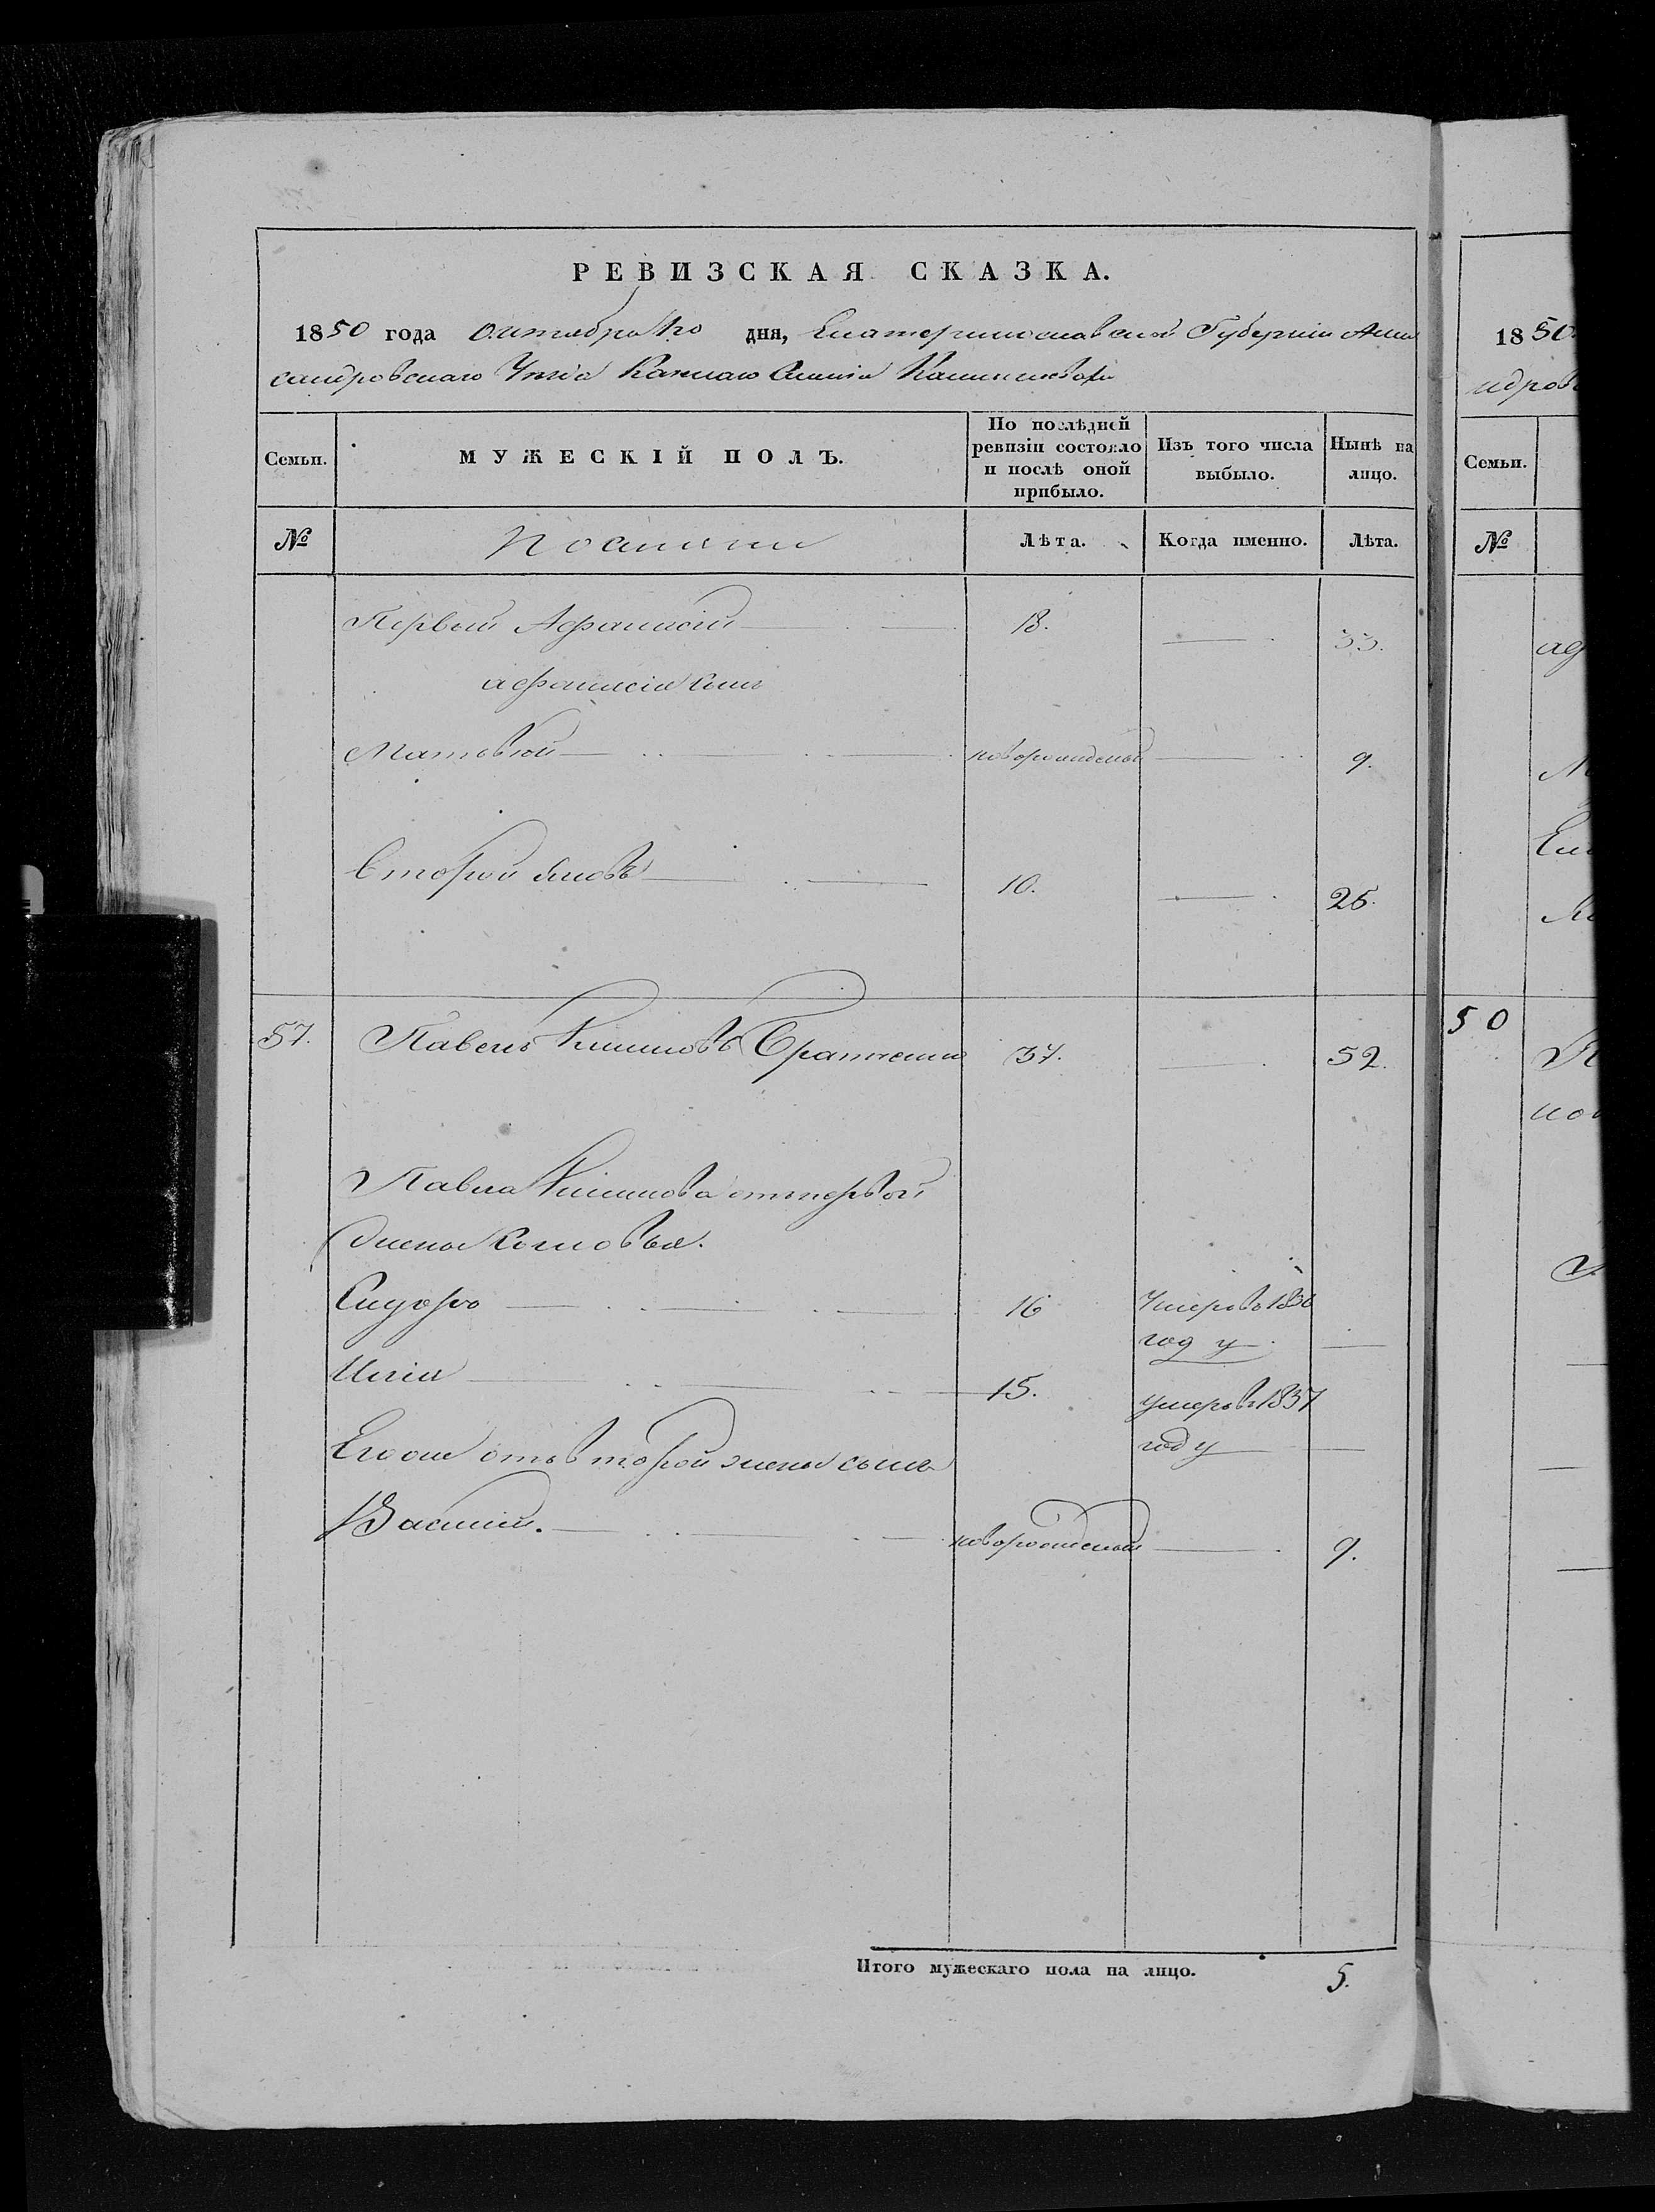 РЕВИЗСКАЯ СКАЗКА.
1850 года октября 1го дня, Екатеринославской Губерніи Алек
сандровскаго Уезда
Семьи.
МУЖЕСКІЙ ПОЛЪ.
По послѣдней ревизіи состояло и послѣ оной прибыло.
Изъ того числа выбыло.
Нынѣ на лицо.
№
Лѣта.
Когда именно.
Лѣта.
Первый Афанасій 18. 33.
афанасія сынъ
Матвѣй новорожденый 9.
Второй Яковъ 10. 25.
57. Павелъ Климовъ 37. 52.
Павла Климова отпервой
жены сыновья.
Сидоръ 16 Умеръ въ 1836
году
Илія 15. умеръ въ 1837
году
Егоже отъ второй жены сынъ
Василій. новорожденый 9.
Итого мужескаго пола на лицо. 5.
1850
ндров
Семьи.
№
50